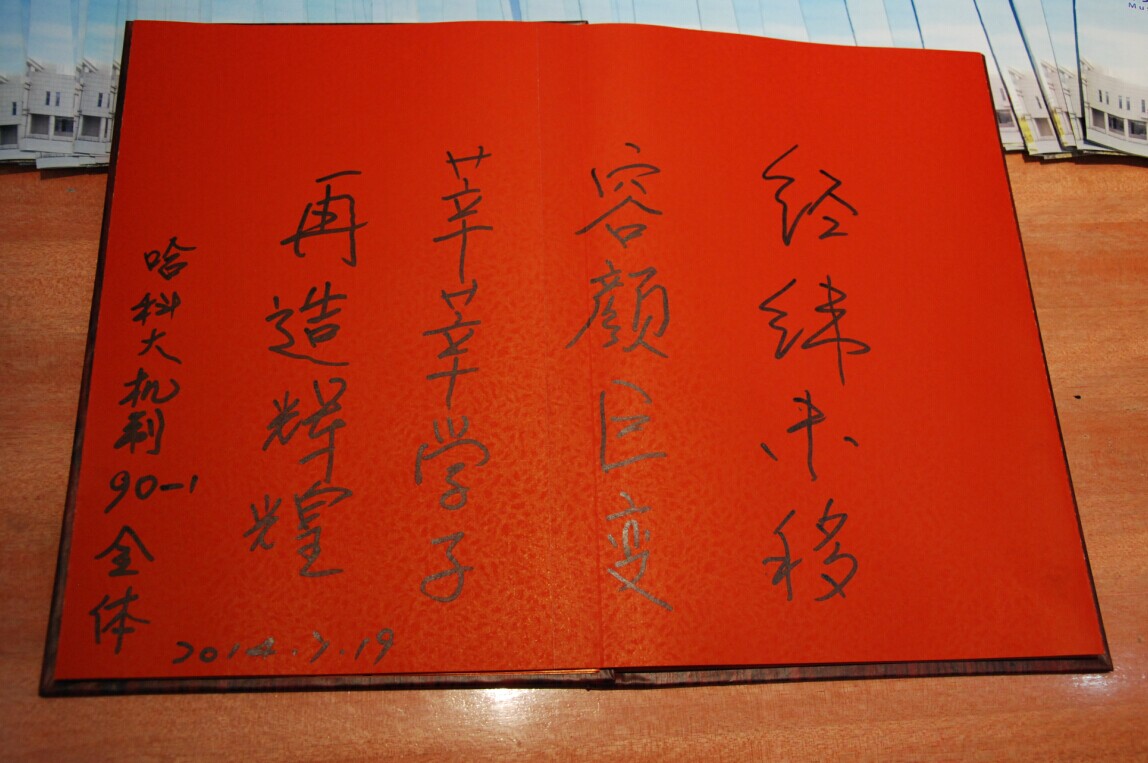 经纬未移
容颜巨变
莘莘学子
再造辉煌
哈科大机制90-1全体
2014.7.19